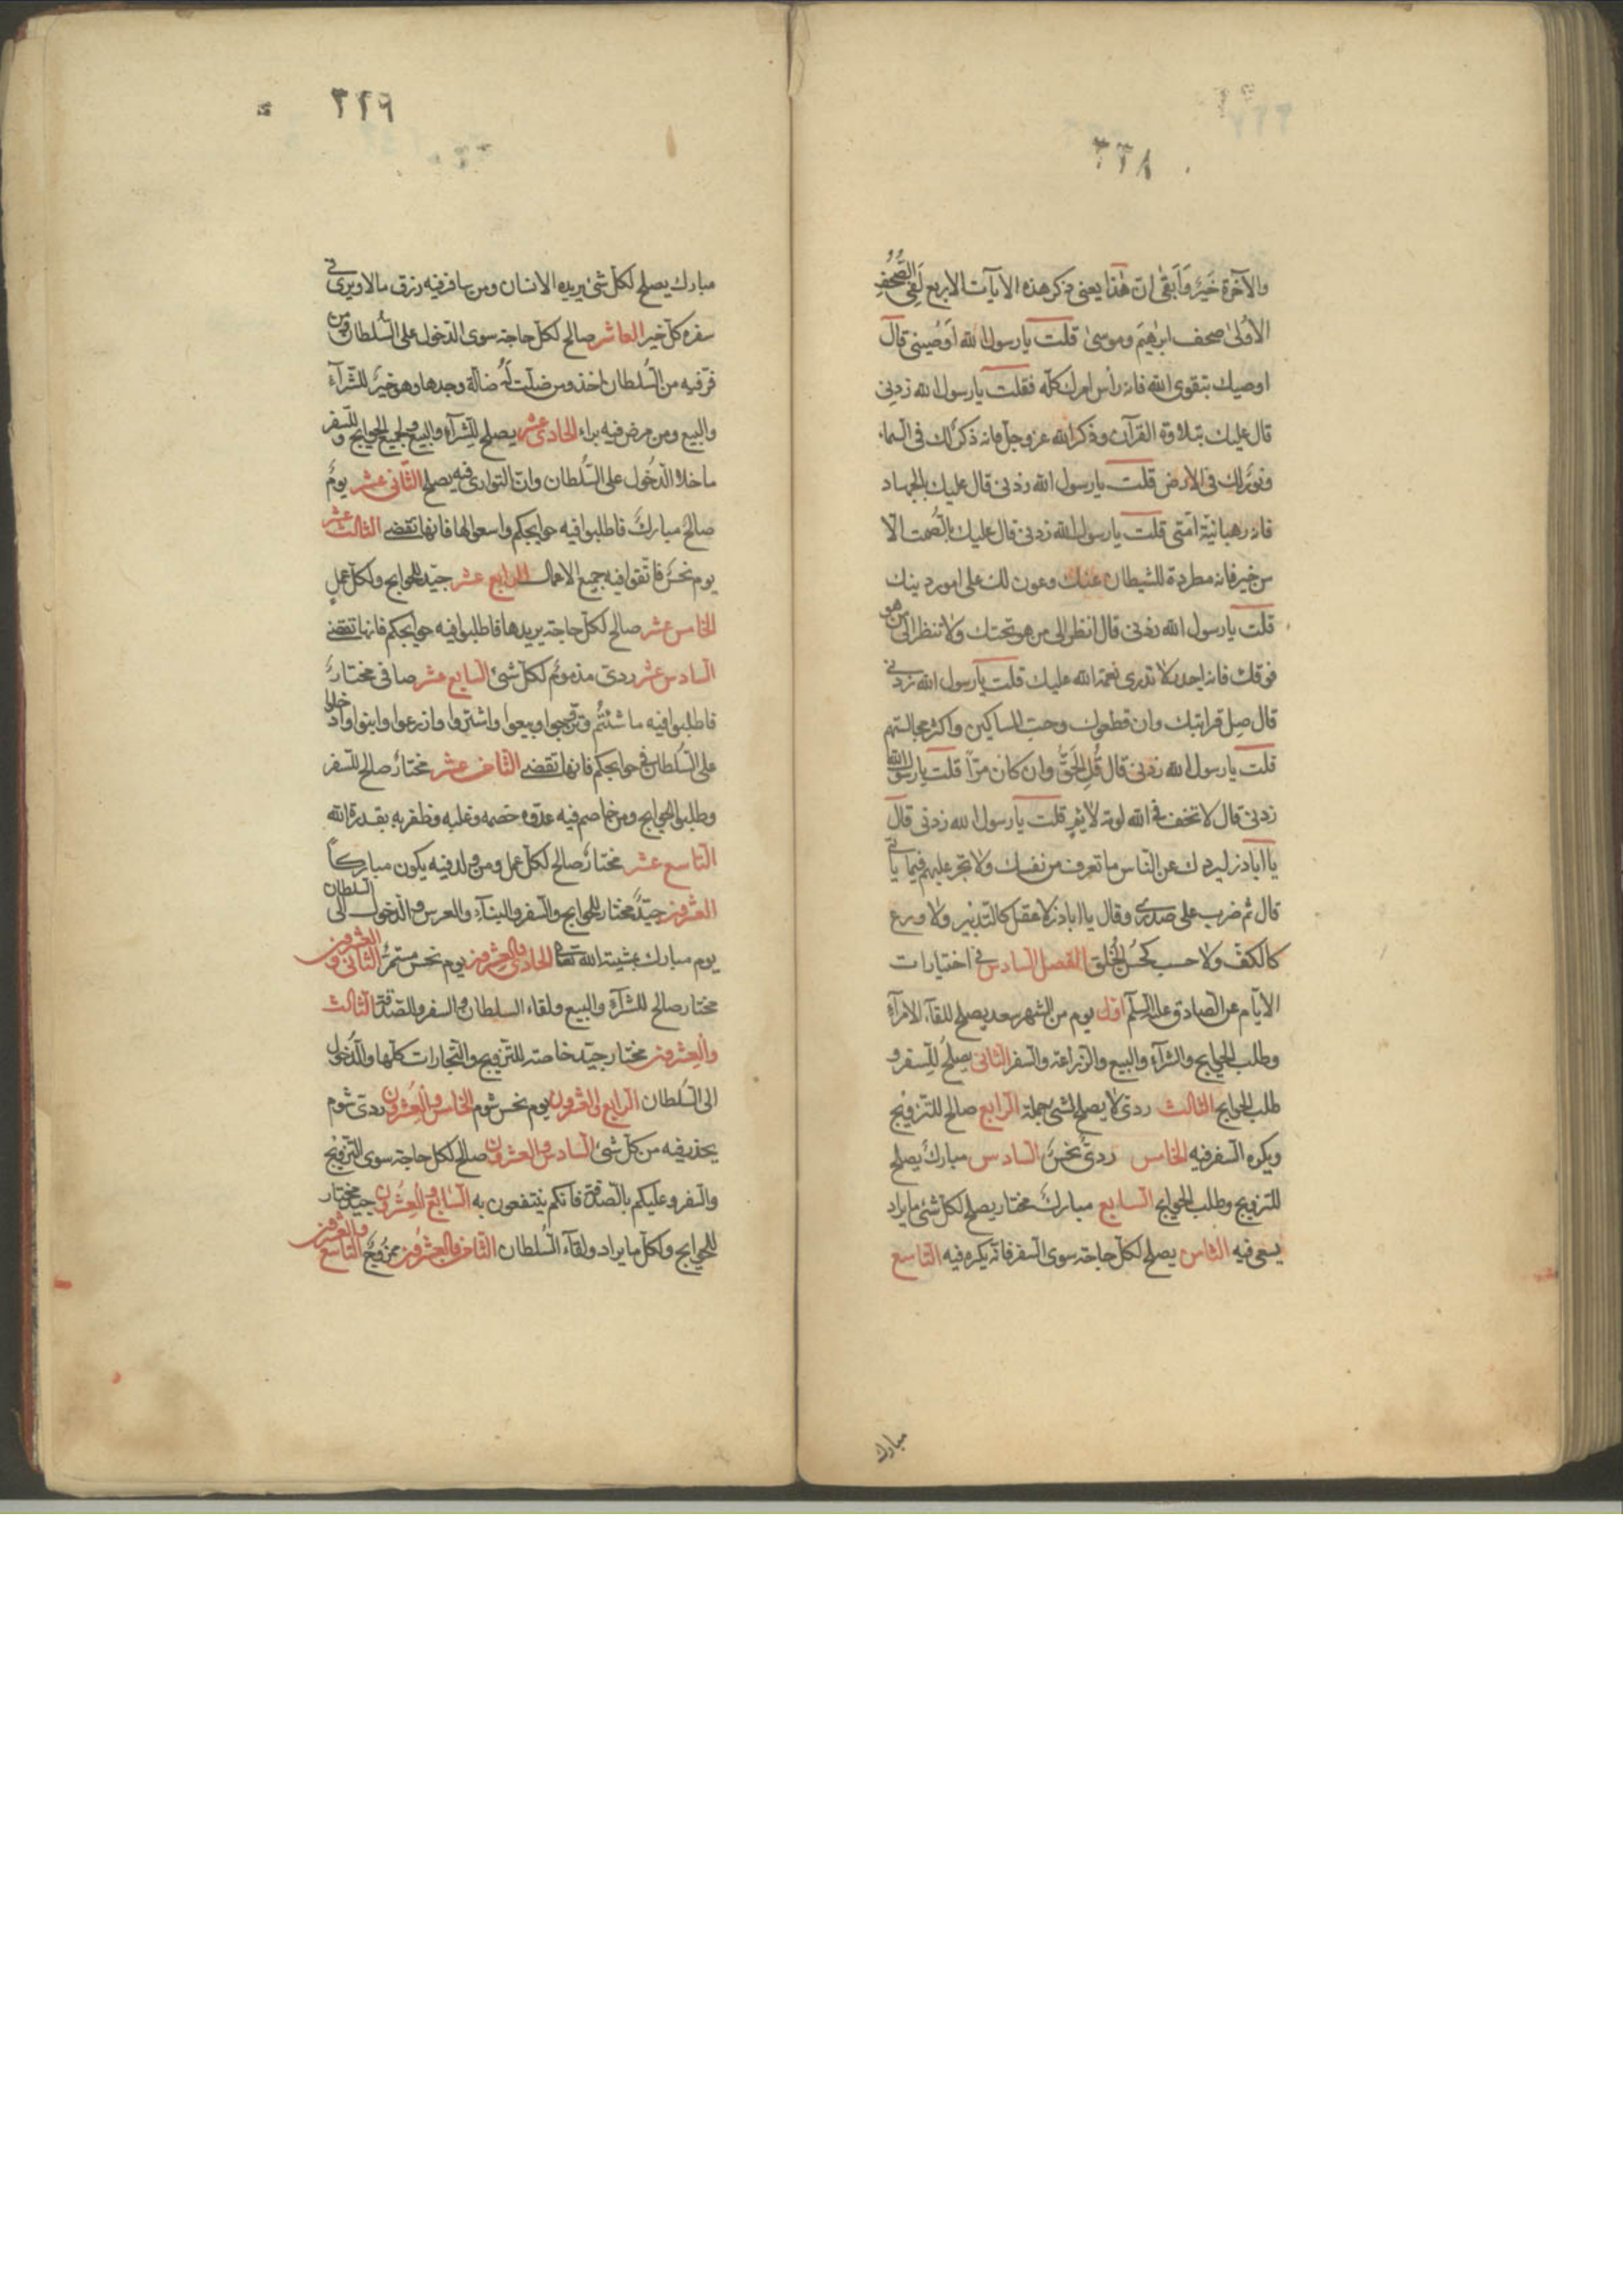 ٢٢٨
والآخرة خَيرٌ وَاَبقى انّ هٰذا يعنى ذكر هذه الاآيات الاربع لَفِى الصُّحُفِ
الاُولىٰ صحف ابرٰهيمَ وموسىٰ قلت يا رسول الله اَوصِينى قال
اوصيك بتقوى الله فانه رأس امرك كلّه فقلت يا رسول الله زدنِى
قال عليك بتلاوة القرآن وذكر الله عزوجل فانه ذكر لك فى السماء
ونورٌ لك فى الارض قلت يا رسول الله زدنى قال عليك بالجهاد
فانه رهبانيّة اُمّتى قلت يا رسول الله زدنى قال عليك بالصُّمت الّا
من خير فانه مطردة للشيطان عنك وعون لك على امور دينك
قلت يا رسول الله زدنى قال انظر الى من هو تحتك ولا تنظر الى من هو
فوقك فانه اجدر لا تذرى نعمة الله عليك قلت يا رسول الله زدنى
قال صِل قرابتك وان قطعوك وحبّ المساكين واكثر مجالستهم
قلت يا رسول الله زدنى قال قُلِ الحَقَّ وان كان مرّاً قلت يا رسول الله
زدنى قال لا تخف فى الله لومة لايمٍ قلت يا رسول الله زدنى قال
يا اباذر ليردك عن النّاس ما تعرف من نفسك ولا تجر عليهم فيما يأتى
قال ثم ضرب على صدرى وقال يا اباذر لا عقل كالتدبير ولا ورع
كالكفّ ولا حسب كحُسنِ الخُلق الفصل السادس فى اختيارات
الايّام عن الصادق عليه السلم اوّل يوم من الشهر سعد يصلح للقآء الامرآء
وطلب الحوايج والشرآء والبيع والزراعة والسفر الثانى يصلحُ للسفر و
طلب الحوايج الثالث ردىّ لا يصلح لشئ جملة الرابع صالح للتزويج
ويكره السفر فيه الخامس ردىٌ نحسٌ السادس مبارك يصلح
للتزويج وطلب الحوايج السابع مباركٌ مختار يصلح لكلّ شئ ما يراد
يسعى فيه الثامن يصلح لكلّ حاجة سوى السفر فانّه يكره فيه التاسع
مبارك
٢٢٩
مبارك يصلح لكلّ شئ يريده الانسان ومن سافر فيه رزق مالا ويرى فى
سفره كلّ خير العاشر صالح لكل حاجة سوى الدّخول على السُّلطان ومن
فرّ فيه من السُّلطان اخذ ومن ضلّت لَهُ ضالّة وجدها وهو خيرٌ للشرآء
والبيع ومن مرض فيه براء الحادى عشر يصلح للشرآء والبيع ولجميع الحوايج وللسفر
ما خلا الدّخُول على السُّلطان وانّ التوارى فيه يصلح الثّانى عشر يومٌ
صالحٌ مباركٌ فاطلبوا فيه حوايجكم واسعوا لها فانها تقضى الثالث عشر
يوم نحسٌ فاتّقوا فيه جميع الاعمال الرابع عشر جيّد للحوايج ولكلّ عملٍ
الخامس عشر صالح لكلّ حاجة يريدها فاطلبوا فيه حوايجكم فانها تقضى
السادس عشر ردىّ مذمومٌ لكلّ شئ السابع عشر صافى مختارٌ
فاطلبوا فيه ما شئتُم وتزوّجوا وبيعوا واشتروا وازرعوا وابنوا وادخلوا
على السُلطان فى حوايجكم فانها تقضى الثّامن عشر مختارٌ صالح للسفر
وطلب الحوايج ومن خاصم فيه عدوّه خصمه وغلبه وظفر به بقدرة الله
التاسع عشر مختارٌ صالح لكلّ عمل ومن ولد فيه يكون مباركاً
العشرون جيّدٌ مختار للحوايج والسفر والبنآء والعرس والدّخول الى السلطان
يوم مبارك بمشيّة الله تعالى الحادى والعشرون يوم نحس مستمرٌّ الثانى والعشرون
مختار صالح للشرآء والبيع ولقاء السلطان والسفر والصّدقة الثالث
والعِشرون مختار جيّد خاصة للتزويج والتجارات كلّها والدُّخول
الى السُلطان الرابع والعشرون يوم نحس شوم الخامس والعِشرُون ردىّ شوم
يحذر فيه من كلّ شئ السادس والعشرون صالح لكل حاجة سوى التزويج
والسفر وعليكم بالصّدقة فانّكم ينتفعون به السّابع والعِشرُون جيّد مختار
للحوايج ولكلّ ما يراد ولقآء السُلطان الثّامن والعِشرُون ممزوجٌ التاسع والعشرون